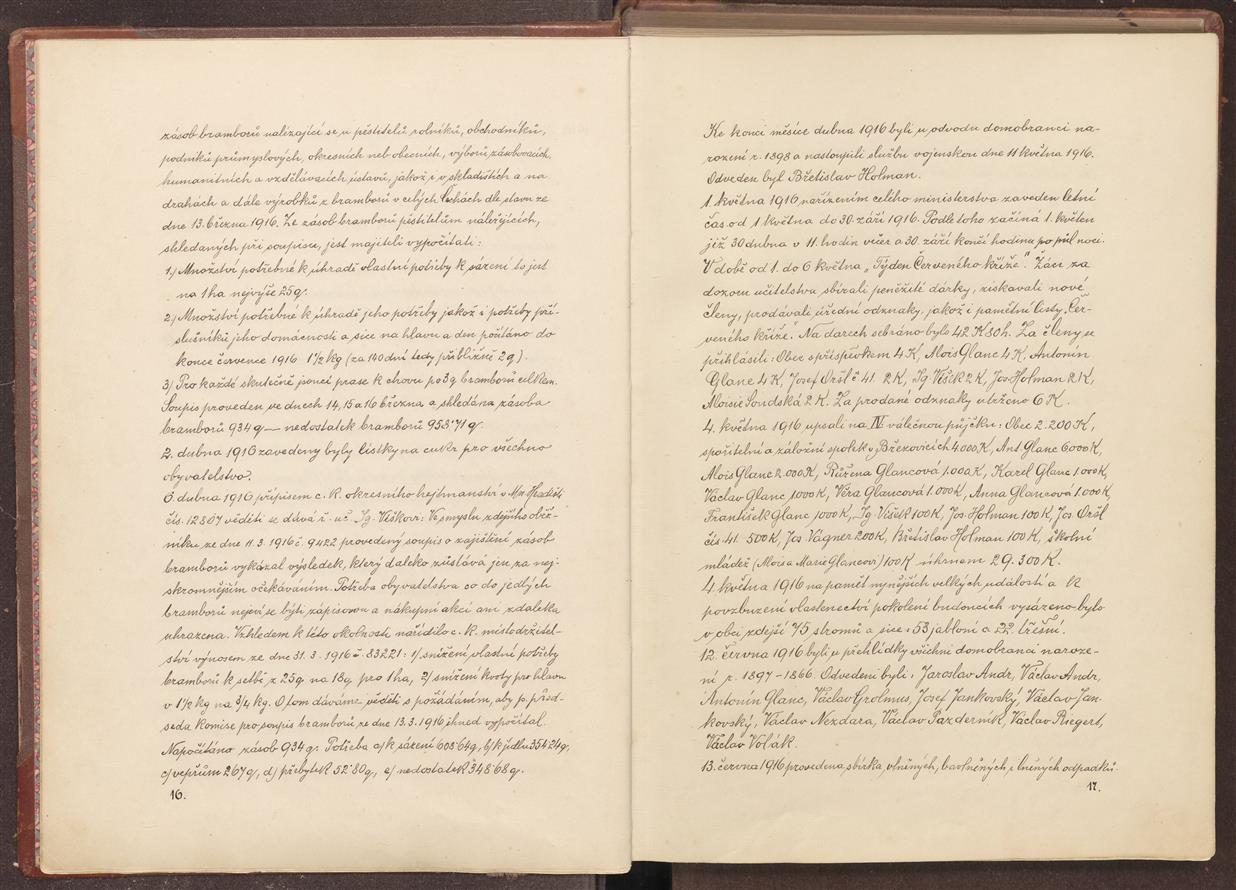 zásob bramborů nalézající se u pěstitelů rolníků, obchodníků,
podniků průmyslových, okresních neb obecních, výborů zásobovacích,
humanitních a vzdělávacích ústavů, jakož i v skladištích a na
drahách a dále výrobků z bramborů v celých Čechách dle stavu ze
dne 13. března 1916. Ze zásob bramborů pěstitelům náležejících,
shledaných při soupisu, jest majiteli vypočítati:
1.) Množství potřebné k úhradě vlastní potřeby k sázení to jest
na 1 ha nejvýše 25 q.
2.) Množství potřebné k úhradě jeho potřeby jakož i potřeby pří-
slušníků jeho domácnosti a sice na hlavu a den počítáno do
konce července 1916 1½ kg (za 140 dní tedy přibližně 2 q).
3) Pro každé skutečně jsoucí prase k chovu po 3 q bramborů celkem.
Soupis proveden ve dnech 14, 15 a 16 března a shledána zásoba
bramborů 934 q — nedostatek bramborů 958·71 q.
2. dubna 1916 zavedeny byly lístky na cukr pro všechno
obyvatelstvo.
6. dubna 1916 přípisem c. k. okresního hejtmanství v Mn. Hradišti
čís. 12807 věděti se dává ř. uč. Ig. Víškovi: Ve smyslu zdejšího oběž-
níku ze dne 11. 3. 1916 č. 9422 provedený soupis o zajištění zásob
bramborů vykázal výsledek, který daleko zůstává jen za nej-
skromnějším očekáváním. Potřeba obyvatelstva co do jedlých
bramborů nejeví se býti zápisovou a nákupní akcí ani zdaleka
uhrazena. Vzhledem k této okolnosti nařídilo c. k. místodržitel-
ství výnosem ze dne 31. 3. 1916 č. 83221: 1/ snížení vlastní potřeby
bramborů k setbě z 25 q na 18 q pro 1 ha, 2/ snížení kvoty pro hlavu
v 1½ kg na ¾ kg. O tom dáváme věděti s požádáním, aby p. před-
seda komise pro soupis bramborů ze dne 13. 3. 1916 ihned vypočítal.
Napočítáno zásob 934 q. Potřeba a/ k sázení 608·64 q, b/ k jídlu 354·24 q,
c/ vepřům 267 q, d/ přebytek 52·80 q, e/ nedostatek 348·68 q.
16.
Ke konci měsíce dubna 1916 byli u odvodu domobranci na-
rození r. 1898 a nastoupili službu vojenskou dne 11 května 1916.
Odveden byl Břetislav Holman.
1. května 1916 nařízením celého ministerstva zaveden letní
čas od 1 května do 30. září 1916. Podle toho začíná 1. květen
již 30 dubna v 11. hodin večer a 30. září končí hodinu po půl noci.
V době od 1. do 6 května „Týden Červeného kříže". Žáci za
dozoru učitelstva sbírali peněžité dárky, získavali nové
členy, prodávali úřední odznaky, jakož i pamětní listy „Čer-
veného kříže". Na darech sebráno bylo 42 K 80 h. Za členy se
přihlásili: Obec s příspěvkem 4 K, Alois Glanc 4 K, Antonín
Glanc 4 K, Josef Oršl č 41. 2 K, Ig Víšek 2 K, Jos Holman 2 K,
Aloisie Sondská 2 K. Za prodané odznaky utrženo 6 K.
4. května 1916 upsali na IV válečnou půjčku: Obec 2.200 K,
spořitelní a záložní spolek v Březovicích 4.000 K, Ant. Glanc 6000 K,
Alois Glanc 2.000 K, Růžena Glancová 1.000 K, Karel Glanc 1.000 K,
Václav Glanc 1000 K, Věra Glancová 1.000 K, Anna Glancová 1.000 K,
František Glanc 1000 K, Ig Víšek 100 K, Jos. Holman 100 K, Jos Oršl
čís. 41. 500 K, Jos. Vágner 200 K, Břetislav Holman 100 K, školní
mládež (Alois a Marie Glancovi) 100 K úhrnem 29.300 K.
4. května 1916 na paměť nynějších velkých událostí a k
povzbuzení vlastenectví pokolení budoucích vysázeno bylo
v obci zdejší 75 stromů a sice: 53 jabloní a 22. třešní.
12. června 1916 byli u přehlídky všichni domobranci naroze-
ní r. 1897 - 1866. Odvedeni byli: Jaroslav Andr, Václav Andr,
Antonín Glanc, Václav Grolmus, Josef Jankovský, Václav Jan-
kovský, Václav Nezdara, Václav Pazderník, Václav Riegert,
Václav Volák.
13. června 1916 provedena sbírka vlněných, bavlněných, i lněných odpadků.
17.